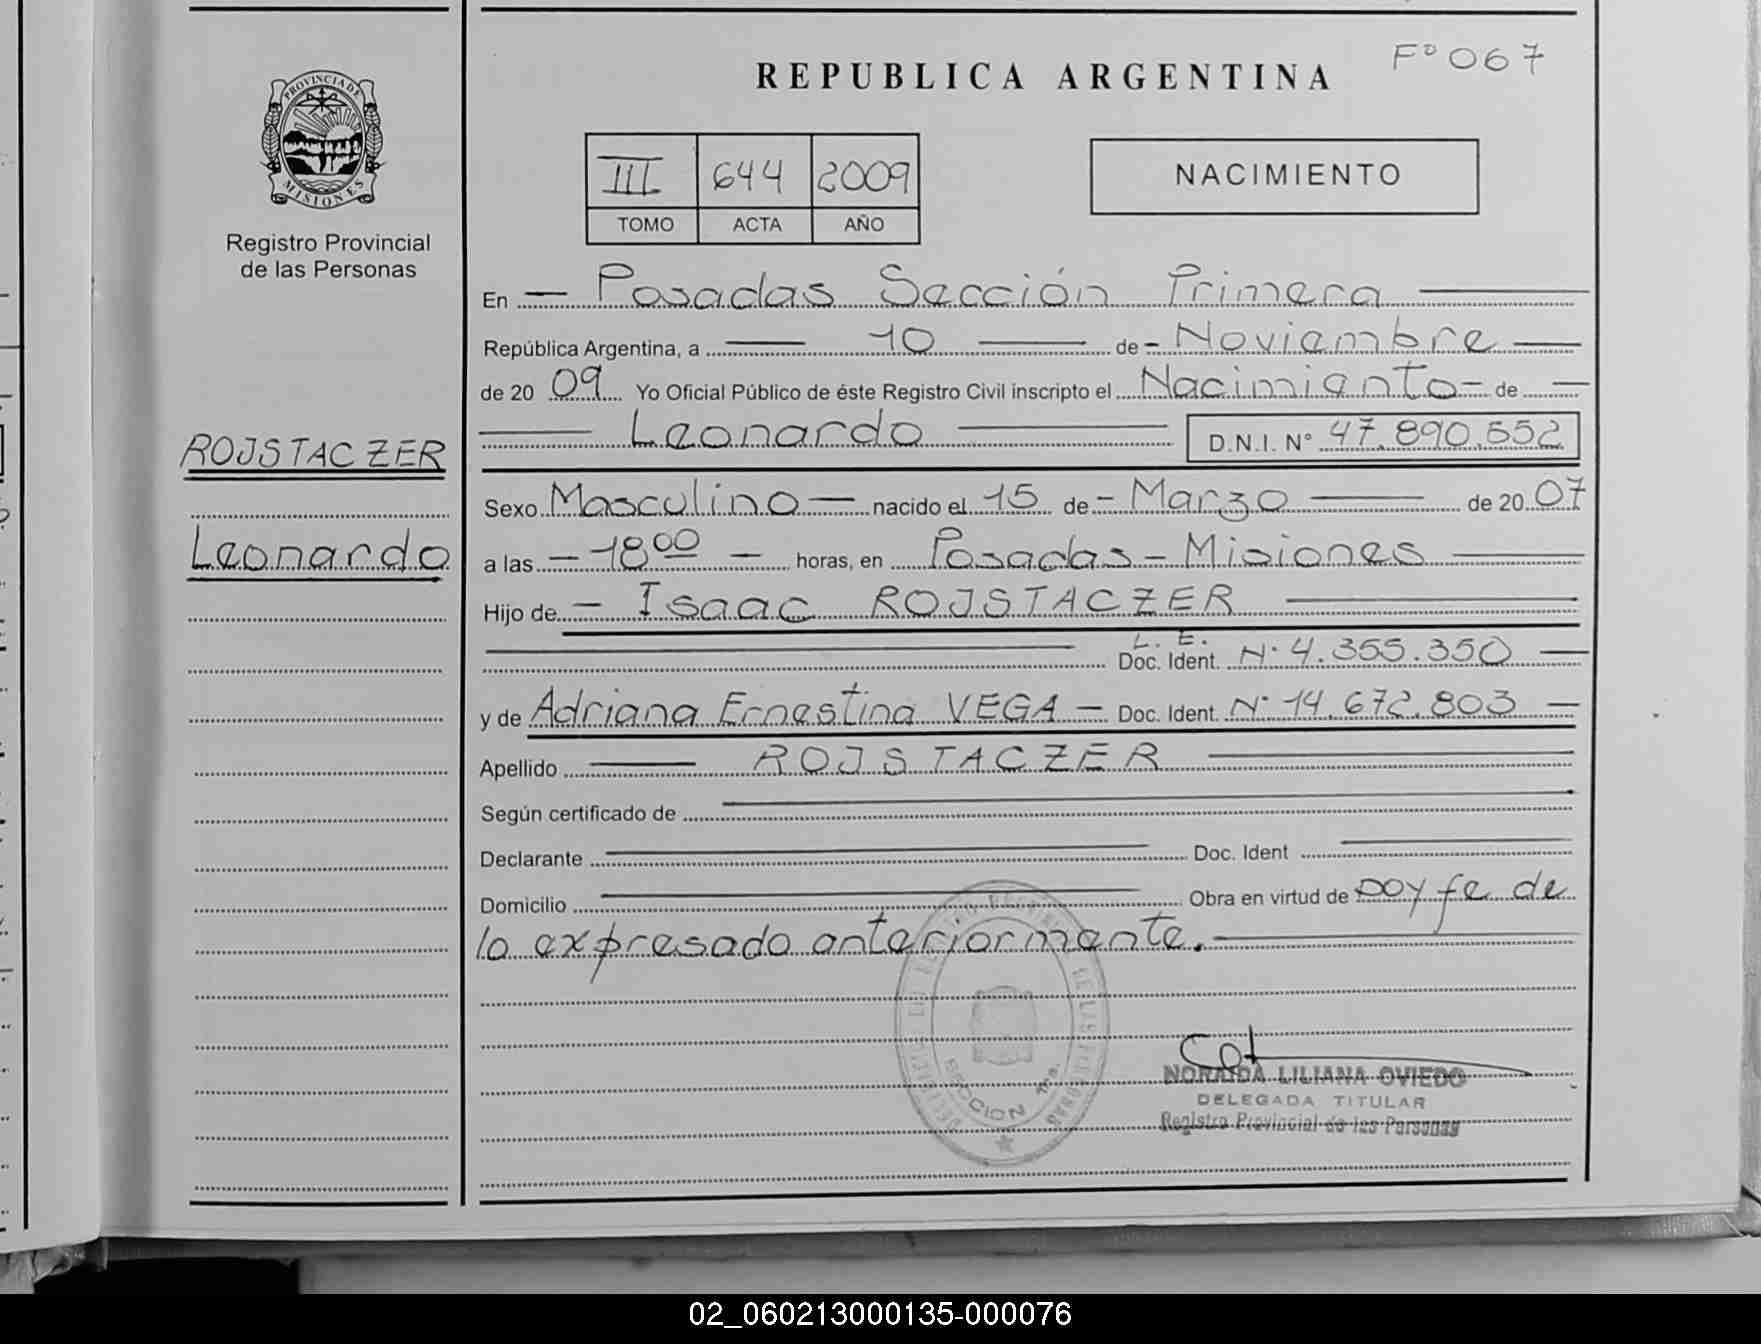 Fº 067
REPUBLICA ARGENTINA
PROVINCIA DE
MISIONES
Registro Provincial
de las Personas
III 644 2009
TOMO ACTA AÑO
NACIMIENTO
En Posadas Sección Primera
República Argentina, a 10 de Noviembre
de 20 09 Yo Oficial Público de éste Registro Civil inscripto el Nacimiento de
Leonardo D.N.I. N° 47.890.552
ROJSTACZER
Leonardo
Sexo Masculino nacido el 15 de Marzo de 20 07
a las 18 00 horas, en Posadas - Misiones
Hijo de Isaac ROJSTACZER
L. E.
Doc. Ident. N· 4.355.350
y de Adriana Ernestina VEGA Doc. Ident. N· 14.672.803
Apellido ROJSTACZER
Según certificado de
Declarante Doc. Ident
Domicilio Obra en virtud de DOY fe de
lo expresado anteriormente.
SECCION 1ra.
NORAIDA LILIANA OVIEDO
DELEGADA TITULAR
Registro Provincial de las Personas
02_060213000135-000076